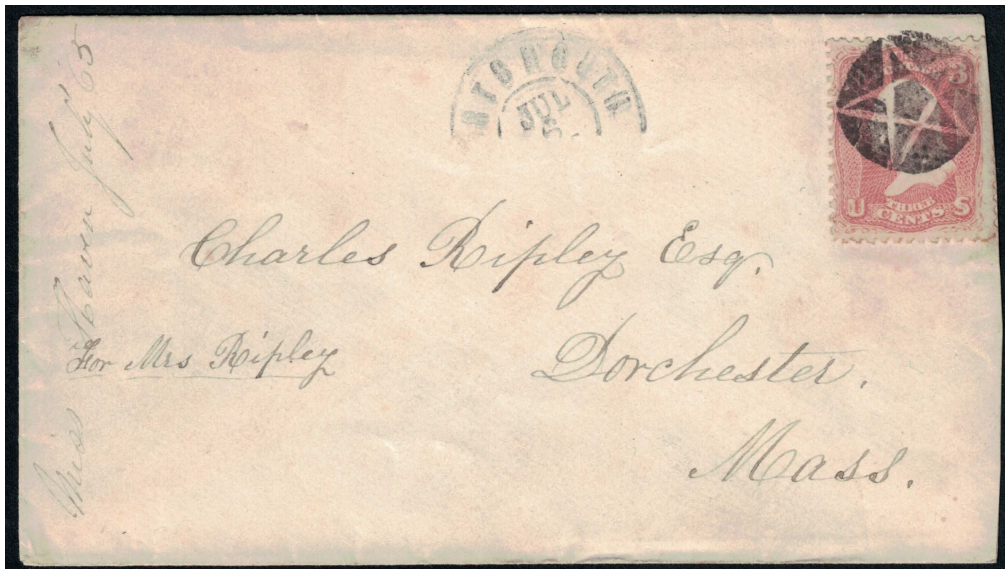 Miss Haven July 65
ORTSMOUTH
JUL
5
3
U THREE S
CENTS
Charles Ripley Esq.
For Mrs Ripley
Dorchester.
Mass.